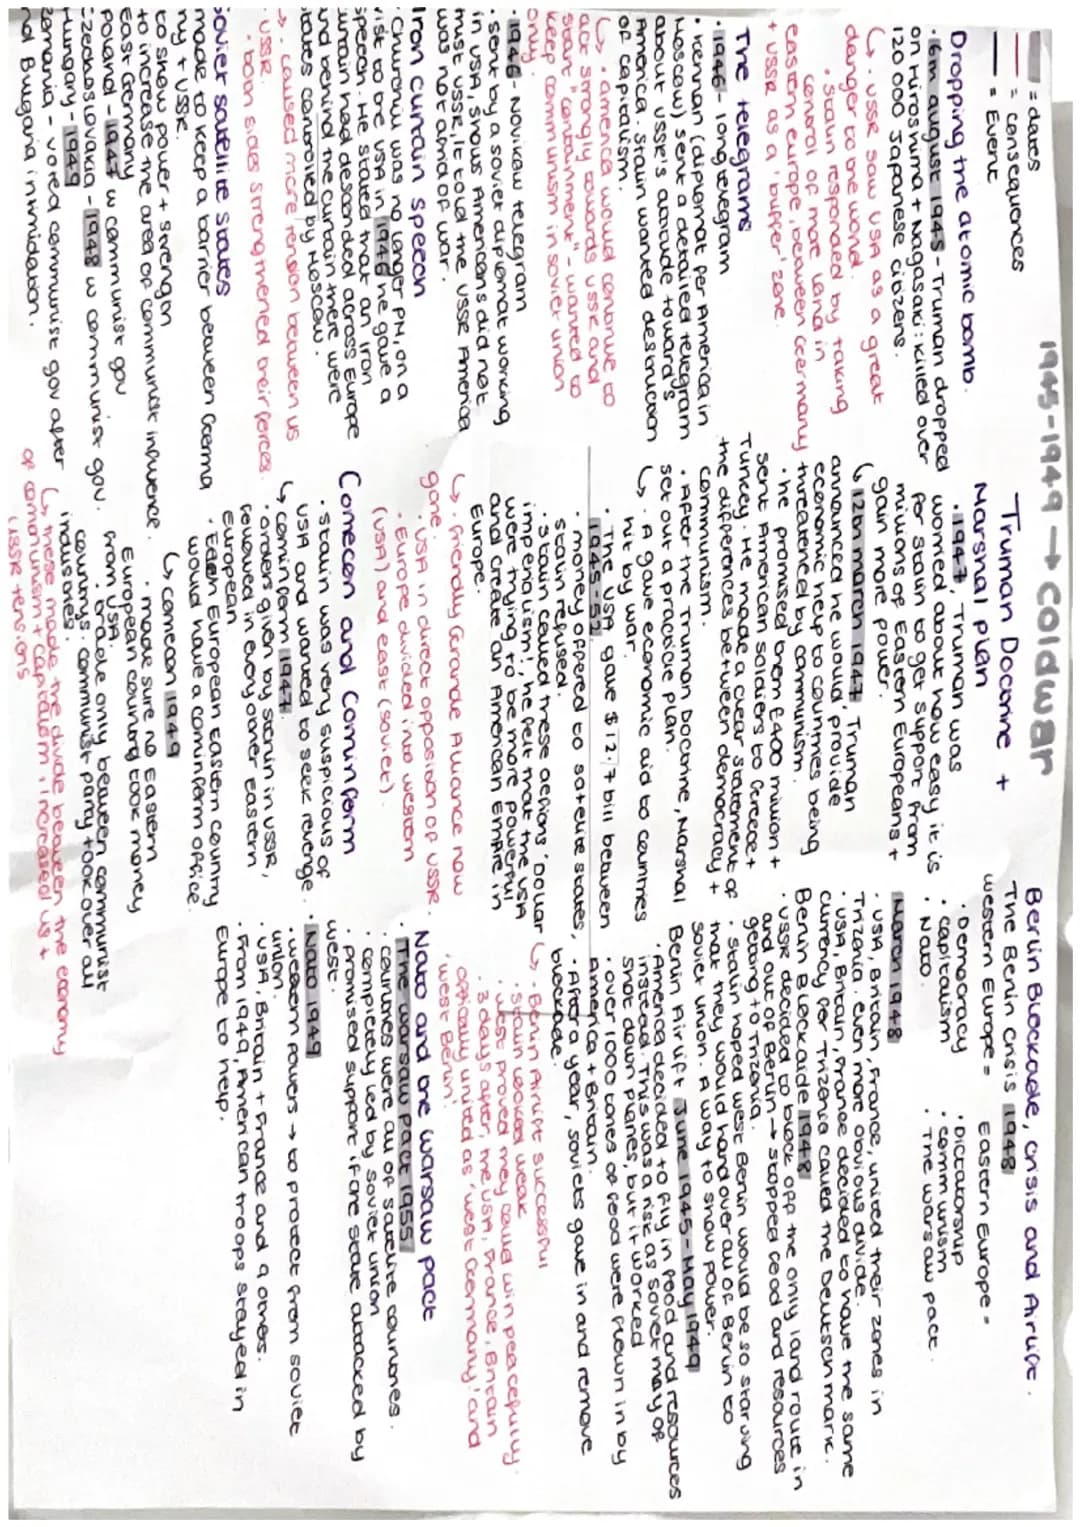 1945-1949 → cold war
= dates
= consequences
= Event
Dropping the atomic bomb.
· 6th august 1945 - Truman dropped
on Hiroshima + Nagasaki: killed over
120 000 Japanese citizens.
↳ · USSR saw USA as a great
danger to the world.
· Stalin responded by taking
control of more land in
eastern europe, between Germany
+ USSR as a 'buffer' zone.
The telegrams
· 1946 - long telegram
· Kennan (diplomat for America in
Moscow) sent a detailed telegram
about USSR's attitude towards
America. Stalin wanted destruction
of capitalism.
↳ · america would continue to
act strongly towards USSR and
start "containment" - wanted to
keep communism in soviet union
only.
· 1946 - Novikov telegram
· sent by a soviet diplomat working
in USA, shows Americans did not
trust USSR, It told the USSR America
was not afraid of war.
Iron curtain speech
· Churchill was no longer PM, on a
visit to the USA in 1946 he gave a
speech. He stated that an Iron
curtain had descended across Europe
and behind the curtain there were
states controlled by Moscow.
→ · caused more tension between US
+ USSR.
· both sides strengthened their forces
Soviet satellite states
made to keep a barrier between Germa
ny + USSR.
to show power + strength
to increase the area of communist influence.
East Germany
Poland - 1947 w communist gov
Czechoslovakia - 1948 w communist gov.
Hungary - 1949
Romania - voted communist gov after
and Bulgaria intimidation.
↳ these made the divide between the economy
of communism + capitalism, increased US +
USSR tensions
Truman Doctrine +
Marshal plan
· 1947, Truman was
worried about how easy it is
for Stalin to get support from
millions of Eastern Europeans +
gain more power.
↳ 12th march 1947, Truman
announced he would provide
economic help to countries being
threatened by communism.
· he promised them £400 million +
sent American soldiers to Greece +
Turkey. He made a clear statement of
the differences between democracy +
communism.
· After the Truman Doctrine, Marshal
set out a practice plan.
↳ · A gave economic aid to countries
hit by war.
· The USA gave $12.7 bill between
1945-52
· money offered to satelite states,
Stalin refused.
· Stalin called these actions 'Dollar
imperialism', he felt that the USA
were trying to be more powerful
and create an American Empire in
Europe.
↳ · friendly Grande Alliance now
gone.
· USA in direct opposion of USSR.
· Europe divided into western
(USA) and east (soviet).
Comecon and Cominform
· Stalin was very suspicious of
USA and wanted to seek revenge.
↳ cominform 1947.
· orders given by Stalin in USSR,
followed in every other Eastern
European.
· Each European Eastern country
would have a cominform office.
↳ comecon 1949
· made sure no Eastern
European country took money
from USA.
· trade only between communist
countrys. communist party took over all
industries.
Berlin Blockade, crisis and Airlift.
The Berlin Crisis 1948
western Europe =
· Democracy
· capitalism
· Nato.
Eastern Europe =
· Dictatorship
· communism
· The warsaw pact.
March 1948
· USA, Britain, France, united their zones in
Trizonia. even more obvious divide.
· USA, Britain, France decided to have the same
currency for Trizonia called the Deutschmark.
Berlin Blockade 1948
· USSR decided to block off the only land route in
and out of Berlin → stopped food and resources
getting to Trizonia.
· Stalin hoped west Berlin would be so starving
that they would hand over all of Berlin to
Soviet union. A way to show power.
Berlin Airlift June 1948-May 1949
· America decided to fly in food and resources
instead. This was a risk as soviet may of
shot down planes, but it worked
· over 1000 tones of food were flown in by
America + Britain.
· After a year, soviets gave in and remove
blockade.
↳ · Berlin Airlift successful
· Stalin looked weak
· west proved they could win peacefully.
· 3 days after, the USA, France, Britain
officially united as 'west Germany' and
'west Berlin'.
Nato and the warsaw pact
· The warsaw pact 1955
· countries were all of satelite countries.
· completely led by soviet union
· promised support if one state attacked by
west.
· Nato 1949
· western powers → to protect from soviet
union.
· USA, Britain + France and 9 others.
· From 1949, American troops stayed in
Europe to help.